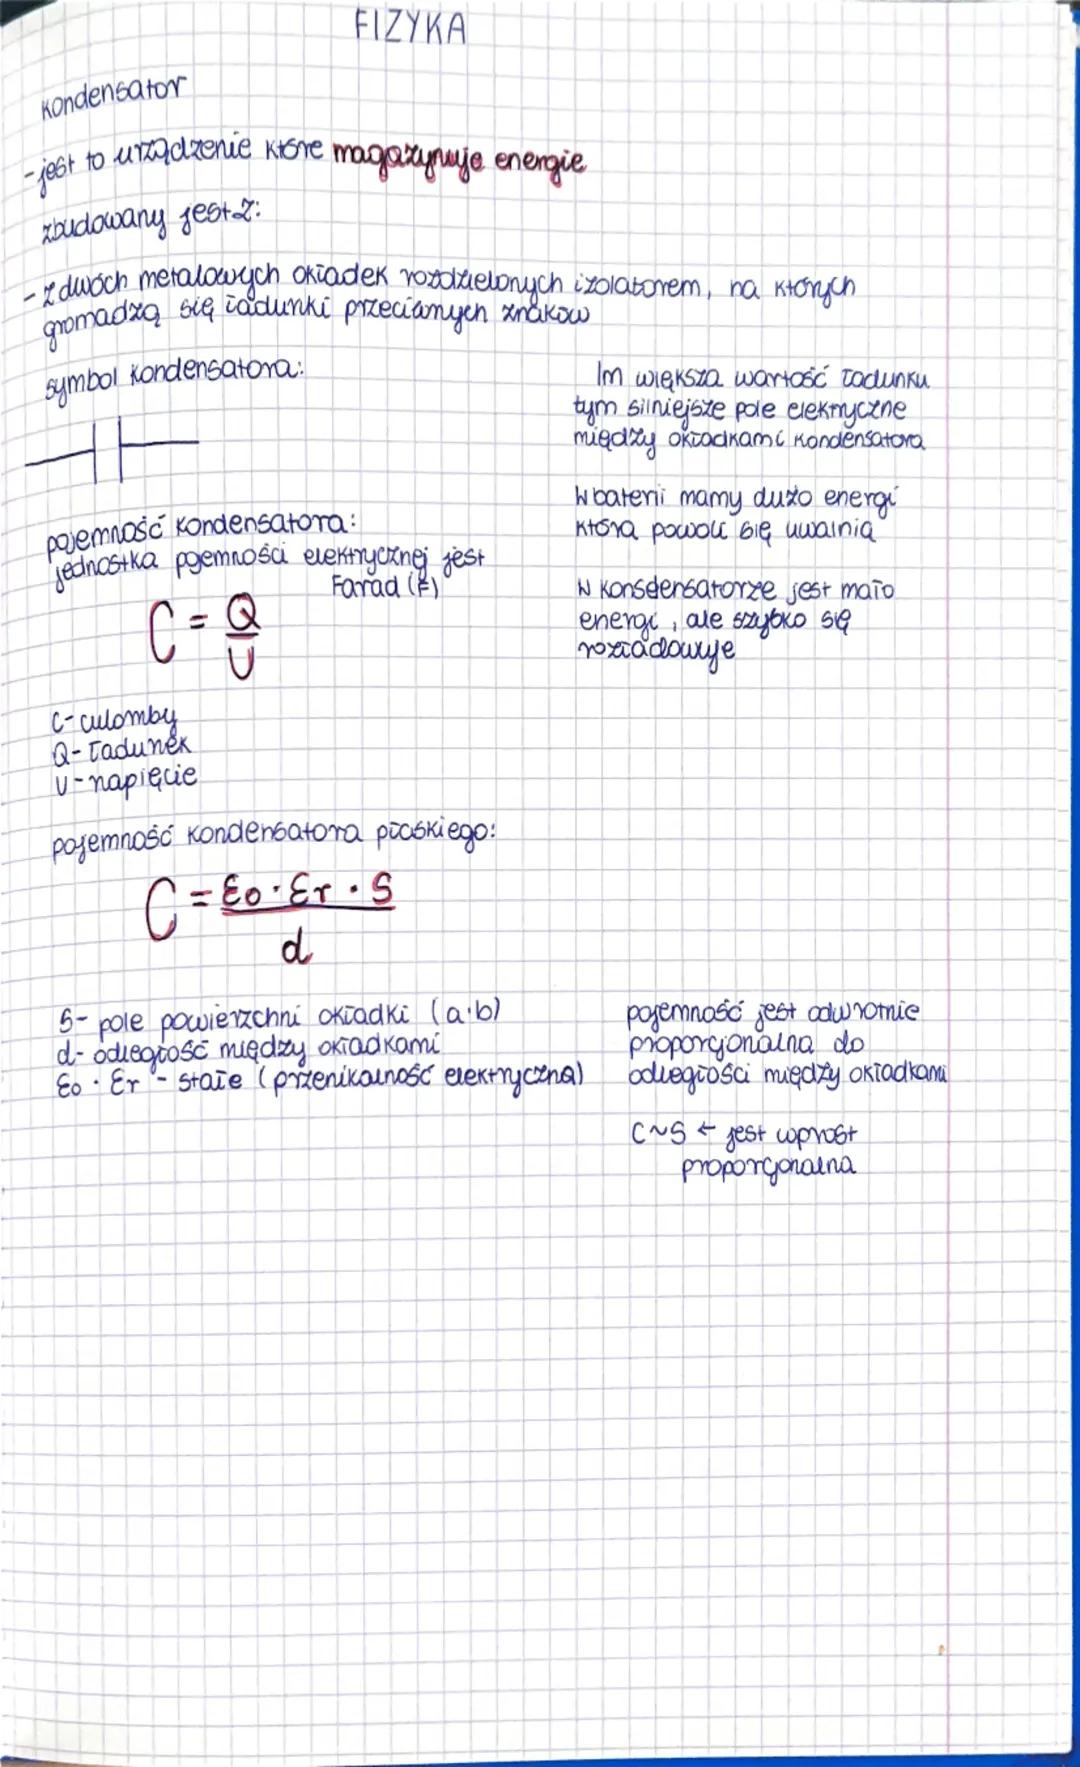 FIZYKA
kondensator
- jest to urządzenie które magazynuje energie
zbudowany jest z:
- z dwóch metalowych okładek rozdzielonych izolatorem, na których
gromadzą się ładunki przeciwnych znaków
symbol kondensatora:
Im większa wartość ładunku
tym silniejsze pole elektryczne
między okładkami kondensatora
W baterii mamy dużo energi
która powoli się uwalnia
W konsdensatorze jest mało
energi, ale szybko się
rozładowuje
pojemność kondensatora:
jednostka pojemności elektrycznej jest
Farad (F)
C = Q
U
C - culomby
Q - ładunek
U - napięcie
pojemność kondensatora płaskiego:
C = ε0 · εr · S
d
S - pole powierzchni okładki (a·b)
d - odległość między okładkami
ε0 · εr - stałe (przenikalność elektryczna)
pojemność jest odwrotnie
proporcjonalna do
odległości między okładkami
C~S ← jest wprost
proporcjonalna